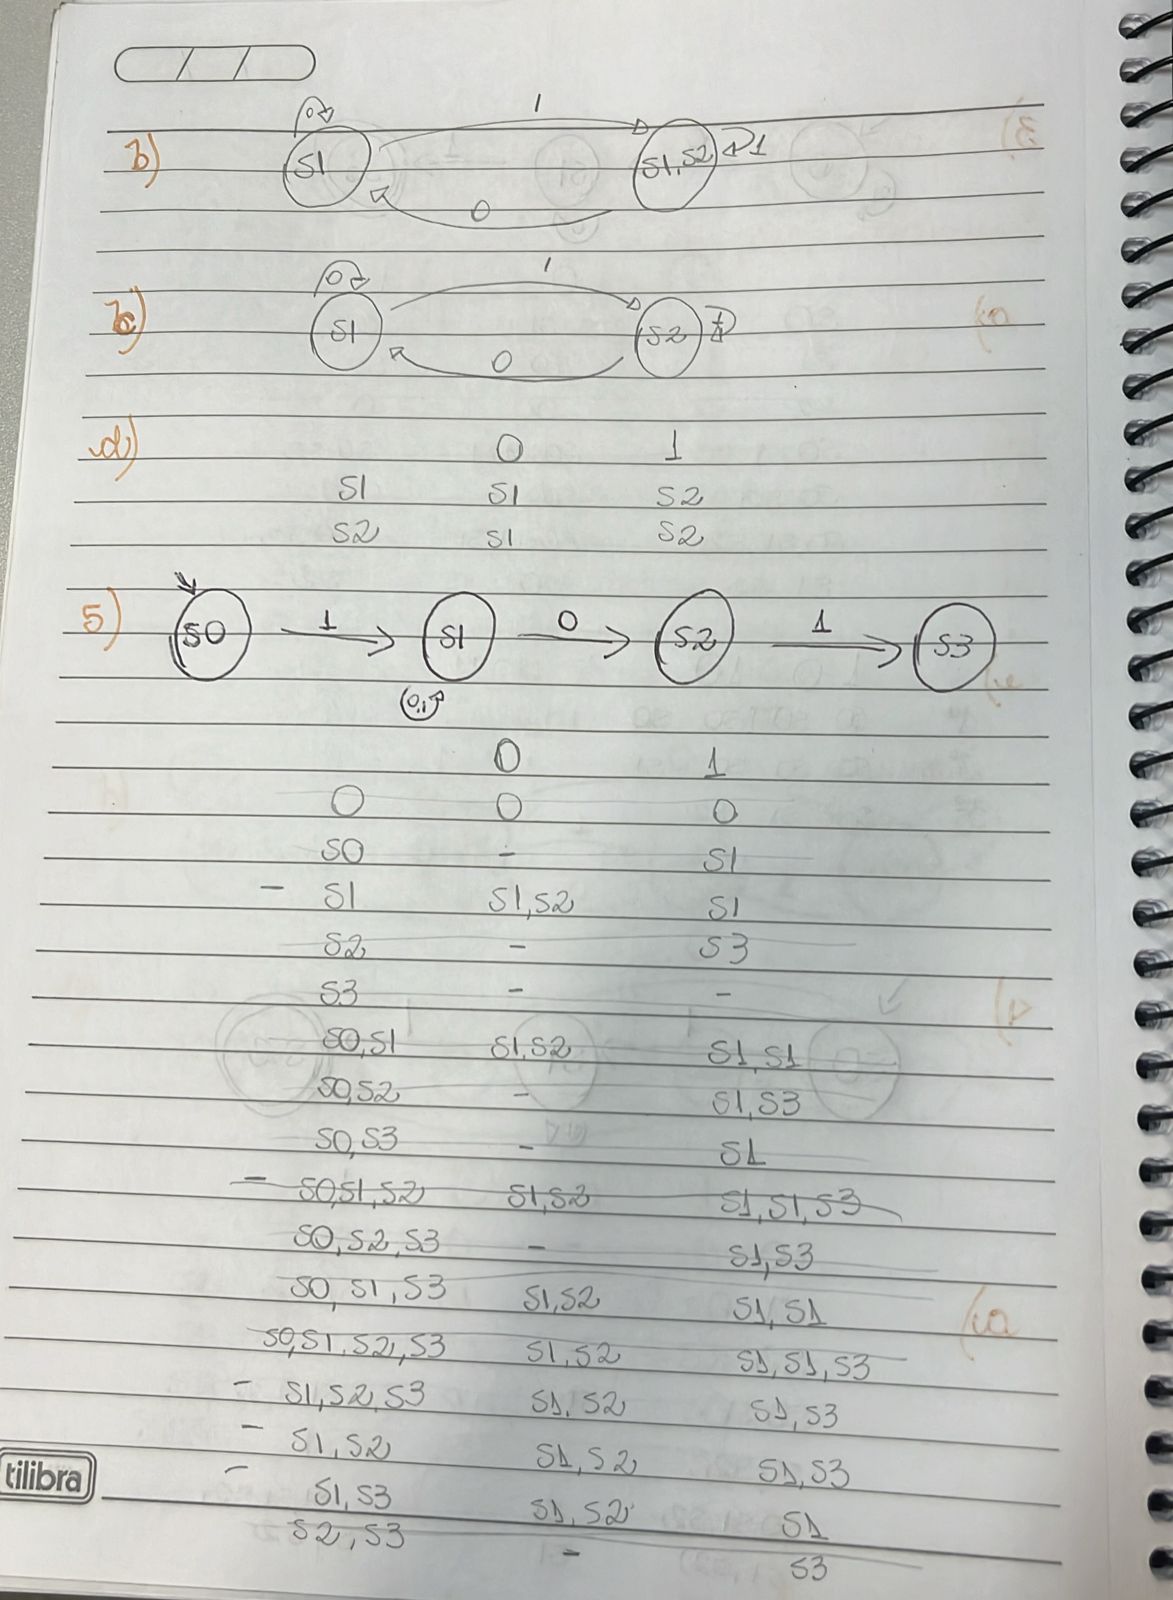 0
1
b)
S1
S1,S2
1
0
0
1
b)
S1
S2
1
0
d)
0 1
S1 S1 S2
S2 S1 S2
5)
S0 1 S1 0 S2 1 S3
0,1
0 1
0 0 0
S0 - S1
- S1 S1,S2 S1
S2 - S3
S3 - -
S0,S1 S1,S2 S1,S1
S0,S2 - S1,S3
S0,S3 - S1
- S0,S1,S2 S1,S2 S1,S1,S3
S0,S2,S3 - S1,S3
S0,S1,S3 S1,S2 S1,S1
S0,S1,S2,S3 S1,S2 S1,S1,S3
- S1,S2,S3 S1,S2 S1,S3
- S1,S2 S1,S2 S1,S3
- S1,S3 S1,S2 S1
S2,S3 - S3
tilibra